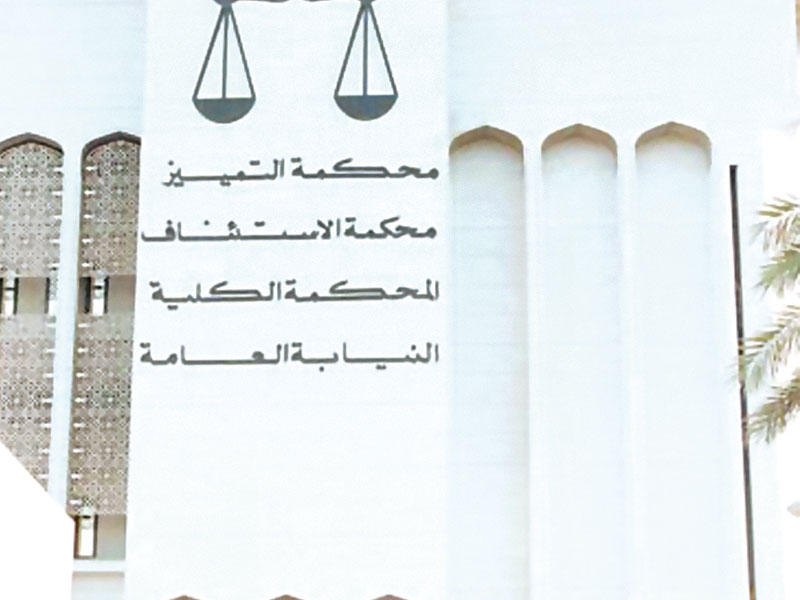 محكمة التمييز
محكمة الاستئناف
المحكمة الكلية
النيابة العامة